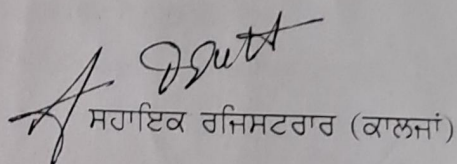 ਸਹਾਇਕ ਰਜਿਸਟਰਾਰ (ਕਾਲਜਾਂ)